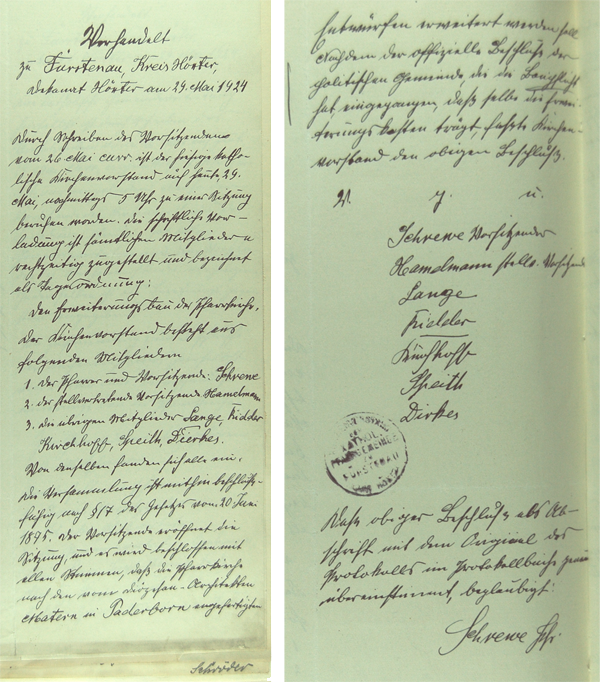 Verhandelt
zu Fürstenau, Kreis Höxter,
Dekanat Höxter am 29. Mai 1924
Durch Schreiben des Vorsitzenden
vom 26 Mai curr. ist der hiesige katho-
lische Kirchenvorstand auf heute 29.
Mai, nachmittags 5 Uhr zu einer Sitzung
berufen worden. Die schriftliche Vor-
ladung ist sämtlichen Mitgliedern
rechtzeitig zugestellt und bezeichnet
als Tagesordnung:
Den Erweiterungsbau der Pfarrkirche.
Der Kirchenvorstand besteht aus
folgenden Mitgliedern
1. der Pfarrer und Vorsitzende: Schrewe
2. der stellvertretende Vorsitzende Hamelmann
3. die übrigen Mitglieder Lange, Ridder
Kirchhoff, Speith, Dierkes.
Von denselben fanden sich alle ein.
Die Versammlung ist mithin beschluß-
fähig nach § 17 des Gesetzes vom 20 Juni
1875. Der Vorsitzende eröffnet die
Sitzung, und es wird beschlossen mit
allen Stimmen, daß die Pfarrkirche
nach den vom Diözesan-Architekten
Matern in Paderborn angefertigten
Schröder
Entwürfen erweitert werden soll
Nachdem der offizielle Beschluß der
politischen Gemeinde, die die Baupflicht
hat eingegangen, daß selbe die
kosten trägt, faßte Kirchen-
vorstand den obigen Beschluß.
V. g. u.
Schrewe Vorsitzender
Hamelmann stellv. Vorsitzender
Lange
Ridder
Kirchhoff
Speith
Dirkes
FÜRSTENAU
Daß obiger Beschluß als Ab-
schrift mit dem Original des
Protokolls im Protokollbuche genau
übereinstimmt, beglaubigt:
Schrewe Pfr.